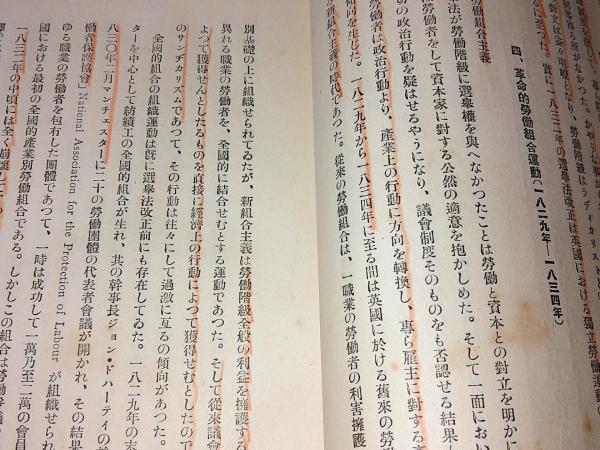 何等得る所がなかつた。かやうな事か
の對立は益〻明瞭となり、勞働階級はラディカリストとの
至つた。實に一八三一年の選擧法改正は英國における獨立勞働運
四、革命的勞働組合運動(一八二九年―一八三四年)
勞働組合主義
法が勞働階級に選擧權を與へなかつたことは勞働と資本との對立を明かに
勞働者をして資本家に對する公然の適意を抱かしめた。そして一面におい
の政治行動を疑はせるやうになり、議會制度そのものをも否認せる結果
勞働者は政治行動より、産業上の行動に方向を轉換し、專ら雇主に對する
傾向を生じた。一八二九年から一八三四年に至る間は英國に於ける舊來の勞
組合主義の時代であつた。從來の勞働組合は、一職業の勞働者の利害擁護
別基礎の上に組織せられてゐたが、新組合主義は勞働階級全般の利益を擁護する
異れる職業の勞働者を、全國的に結合せむとする運動であつた。そして從來議會
よつて獲得せんとしたものを直接に經濟上の行動によつて獲得せむとしたので
のサンヂカリズムであつて、その行動は往々にして過激に亙るの傾向があつた。
全國的組合の組織運動は旣に選擧法改正前にも存在してゐた。一八二九年の末
ターを中心として紡績工の全國的組合が生れ、其の幹事長ジョン・ドハーティの
八三〇年二月マンチェスターに二十の勞働團體の代表者會議が開かれ、その結
働者保護協會」National Association for the Protection of Labour が組織せられ
ゆる職業の勞働者を包有した團體であつて、一時は成功して一萬乃至二萬の會員
國における最初の全國的產業別勞働組合である。しかしこの組合は勞働者
一八三二年の中頃には全く崩壞